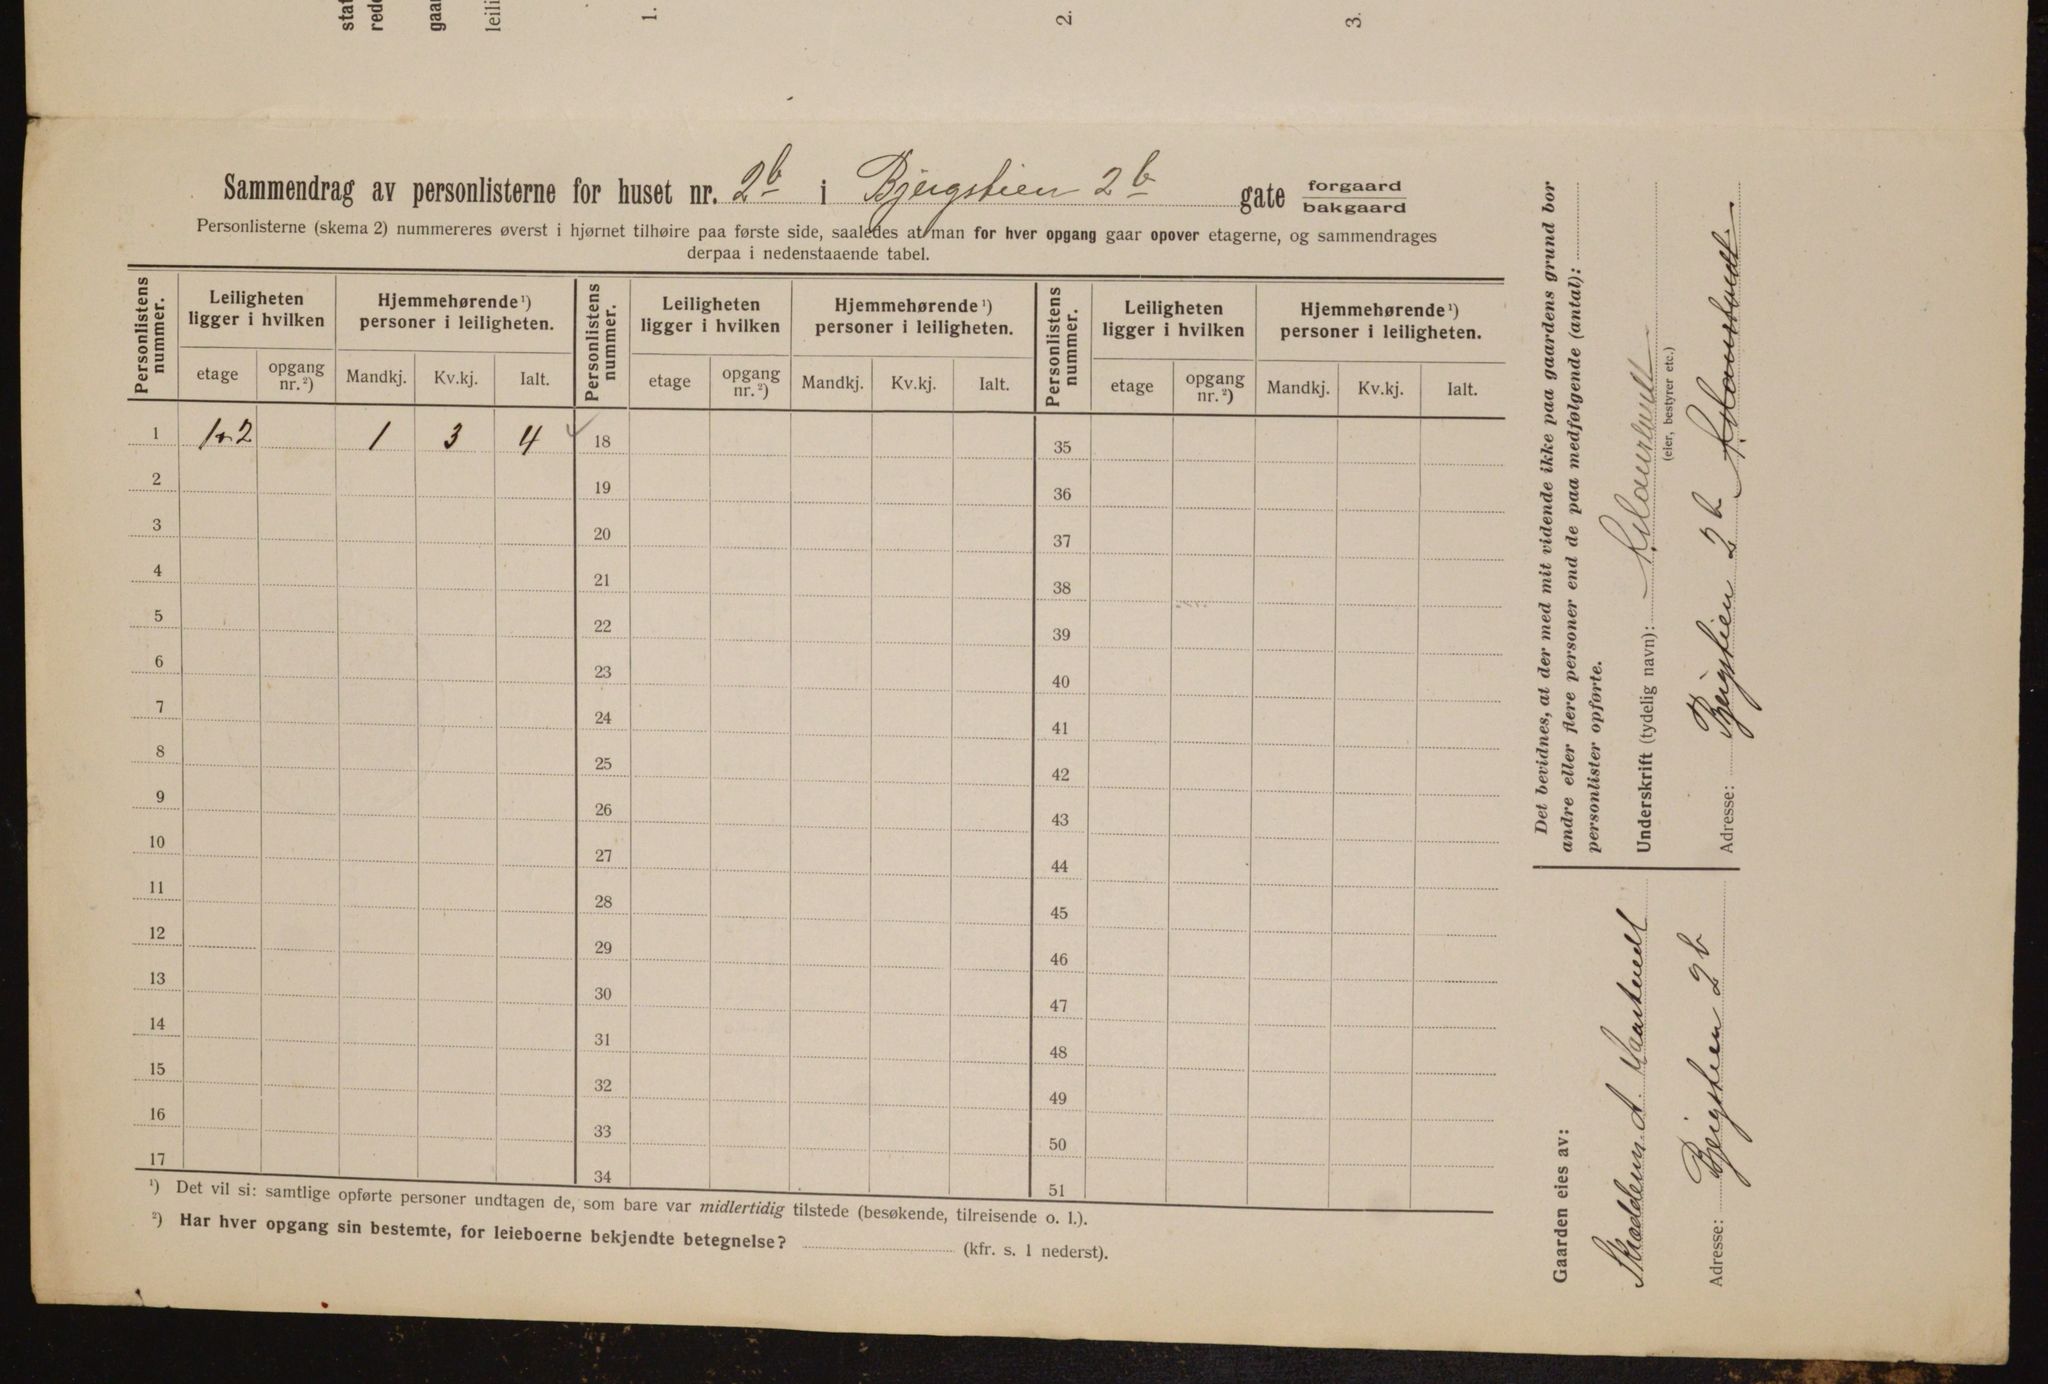 stat
rede
gaar
leili
1.
2.
3.
Sammendrag av personlisterne for huset nr. 2b i Bjergstien 2b gate forgaard
bakgaard
Personlisterne (skema 2) nummereres øverst i hjørnet tilhøire paa første side, saaledes at man for hver opgang gaar opover etagerne, og sammendrages
derpaa i nedenstaaende tabel.
Personlistens nummer. Leiligheten ligger i hvilken Hjemmehørende¹) personer i leiligheten. Personlistens nummer. Leiligheten ligger i hvilken Hjemmehørende¹) personer i leiligheten. Personlistens nummer. Leiligheten ligger i hvilken Hjemmehørende¹) personer i leiligheten.
etage opgang nr.²) Mandkj. Kv.kj. Ialt. etage opgang nr.²) Mandkj. Kv.kj. Ialt. etage opgang nr.²) Mandkj. Kv.kj. Ialt.
1 1+2 1 3 4 18 35
2 19 36
3 20 37
4 21 38
5 22 39
6 23 40
7 24 41
8 25 42
9 26 43
10 27 44
11 28 45
12 29 46
13 30 47
14 31 48
15 32 49
16 33 50
17 34 51
¹) Det vil si: samtlige opførte personer undtagen de, som bare var midlertidig tilstede (besøkende, tilreisende o. l.).
²) Har hver opgang sin bestemte, for leieboerne bekjendte betegnelse? (kfr. s. 1 nederst).
Gaarden eies av:
A.
Adresse: Bjergstien 2b
Det bevidnes, at der med mit vidende ikke paa gaardens grund bor
andre eller flere personer end de paa medfølgende (antal):
personlister opførte.
Underskrift (tydelig navn):
(eier, bestyrer etc.)
Adresse: Bjergstien 2b